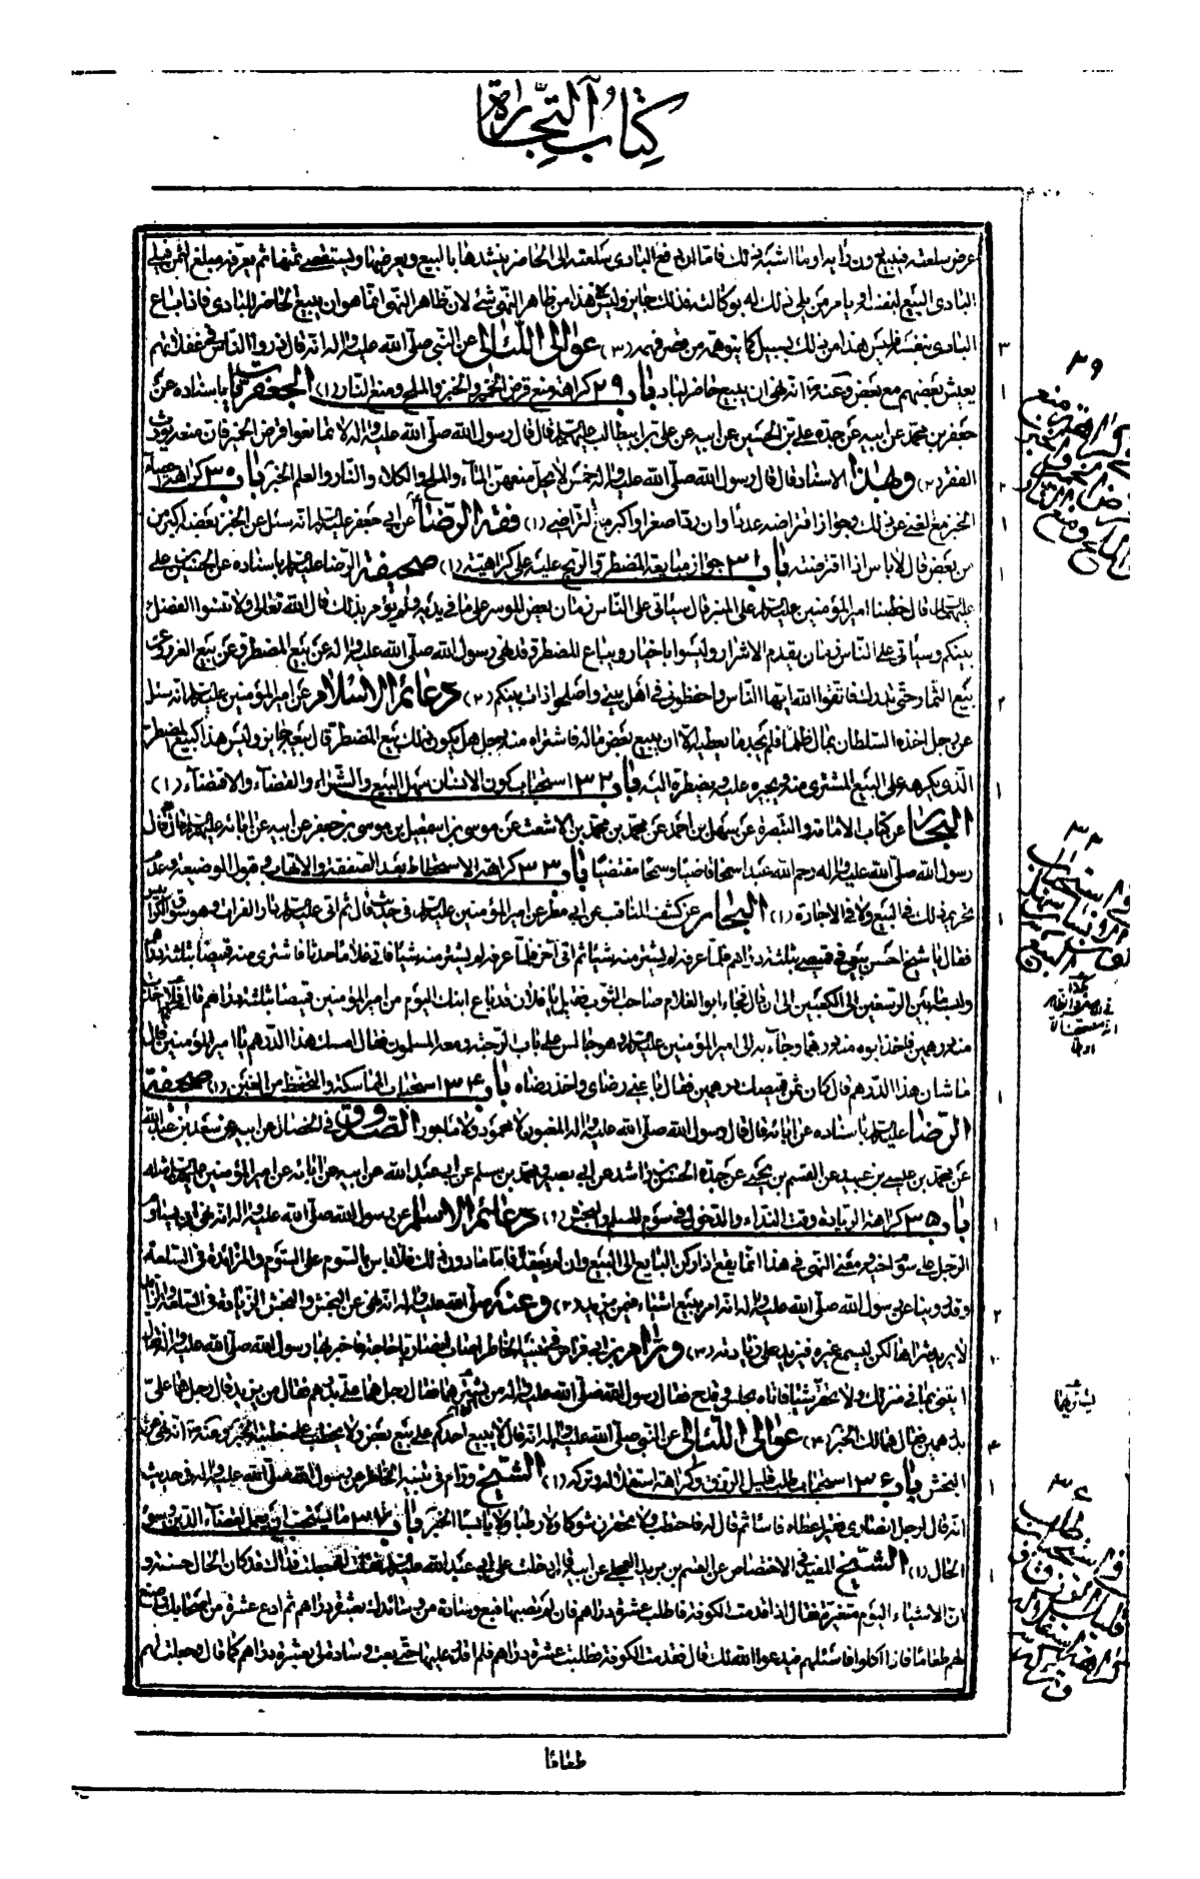 كتاب التجارة
عرض سلعته فيبيع دون رأيه او ما اشبه ذلك فاما ان يدفع البادى سلعته الى الحاضر ينشدها بالبيع ويعرضها ويستقصى ثمنها ثم يعرفه مبلغ الثمن فيلى
البادى البيع لنفسه او يامر من يلى ذلك له بوكالته فذلك جايز وليس هذا من ظاهر النهى شئ لان ظاهر النهى انما هو ان يبيع الحاضر للبادى فاذا باع
البادى بنفسه فليس هذا من ذلك بسبيل كما يتوهمه من قصر فهمه (٣) عوالى اللئالى عن النبى صلى الله عليه واله انه قال ذروا الناس فى غفلاتهم
يعيش بعضهم مع بعض وعنه انه نهى ان يبيع حاضر لباد باب ٢٩ كراهة منع قرض الخمير والخبز والملح ومنع النار (١) الجعفريات باسناده عن
جعفر بن محمد عن ابيه عن جده على بن الحسين عن ابيه عن على بن ابيطالب عليهم قال قال رسول الله صلى الله عليه واله لا تمانعوا قرض الخمير فان منعه يورث
الفقر (٢) وبهذا الاسناد قال قال رسول الله صلى الله عليه واله خمس لا يحل منعهن الماء والملح والكلاء والنار والعلم الخبر باب ٣٠ كراهة
الخبز مع الغنى عن ذلك وجواز اقتراضه عددا وان رد اصغر او اكبر مع التراضى (١) فقه الرضا عن ابى جعفر عليه انه سئل عن الخبز بعضه اكبر من
من بعض قال لا باس اذا اقترضته باب ٣١ جواز مبايعة المضطر والربح عليه على كراهية (١) صحيفة الرضا عليه باسناده عن الحسين بن على
عليهما قال خطبنا امير المؤمنين عليه على المنبر قال سياتى على الناس زمان يعض الموسر على ما فى يديه ولم يؤمر بذلك قال الله تعالى ولا تنسوا الفضل
بينكم وسياتى على الناس زمان يقدم الاشرار وليسوا باخيار ويباع المضطر وقد نهى رسول الله صلى الله عليه واله عن بيع المضطر وعن بيع الغرر وعن
بيع الثمار حتى تدرك فاتقوا الله ايها الناس واحفظونى فى اهل بيتى واصلحوا ذات بينكم (٢) دعائم الاسلام عن امير المؤمنين عليه انه سئل
عن رجل اخذه السلطان بمال ظلما فلم يجد ما يعطيه الا ان يبيع بعض ماله فاشتراه منه رجل هل يكون ذلك بيع المضطر قال بيعه جايز وليس هذا كبيع المضطر
الذى يكرهه على البيع المشترى منه ويجبره عليه ويضطره اليه باب ٣٢ استحباب كون الانسان سهل البيع والشراء والقضاء والاقتضاء (١)
البحار عن كتاب الامامة والتبصرة عن سهل بن احمد عن محمد بن محمد بن الاشعث عن موسى بن اسمعيل بن موسى بن جعفر عن ابيه عن ابائه عليهم قال قال
رسول الله صلى الله عليه واله رحم الله عبدا سمحا قاضيا وسمحا مقتضيا باب ٣٣ كراهة الاستحطاط بعد الصفقة والاتهاب وقبول الوضيعة وعدم
تحريم ذلك فى البيع ولا فى الاجارة (١) البحار عن كشف المناقب عن ابى مطر عن امير المؤمنين عليه فى حديث قال ثم اتى عليه دار الفرات وهو سوق الكرابيس
فقال يا شيخ احسن بيعى فى قميصى بثلثة دراهم فلما عرفه لم يشتر منه شيئا ثم اتى اخر فلما عرفه لم يشتر منه شيئا فاتى غلاما حدثا فاشترى منه قميصا بثلثة دراهم
ولبسه ما بين الرسغين الى الكعبين الى ان قال فجاء ابو الغلام صاحب الثوب فقيل يا فلان قد باع ابنك اليوم من امير المؤمنين قميصا بثلثة دراهم قال افلا اخذت
منه درهمين فاخذ ابوه منه درهما وجاء به الى امير المؤمنين عليه وهو جالس على باب الرحبة ومعه المسلمون فقال امسك هذا الدرهم يا امير المؤمنين قال
ما شان هذا الدرهم قال كان ثمن قميصك درهمين فقال باعنى رضاى واخذ رضاه باب ٣٤ استحباب المماكسة والتحفظ من الغبن (١) صحيفة
الرضا عليه باسناده عن ابائه قال قال رسول الله صلى الله عليه واله المغبون لا محمود ولا ماجور الصدوق فى الخصال عن ابيه عن سعد بن عبد الله
عن محمد بن عيسى بن عبيد عن القسم بن يحيى عن جده الحسن بن راشد عن ابى بصير ومحمد بن مسلم عن ابى عبد الله عن ابيه عن ابائه عن امير المؤمنين عليه مثله
باب ٣٥ كراهة الزيادة وقت النداء والدخول فى سوم المسلم والنجش (١) دعائم الاسلام عن رسول الله صلى الله عليه واله انه نهى ان يساوم
الرجل على سوم اخيه ومعنى النهى فى هذا انما يقع اذا ركن البايع الى البيع وان لم يعقده فاما ما دون ذلك فلا باس بالسوم على السوم والمزايدة فى السلعة
وقد روينا عن رسول الله صلى الله عليه واله انه امر ببيع اشياء فيمن يزيد (٢) وعنه صلى الله عليه واله انه نهى عن النجش والنجش الزيادة فى السلعة والزايد
لا يريد شراها لكن ليسمع غيره فيزيد على زيادته (٣) ورام بن ابى فراس فى تنبيه الخاطر اصاب انصاريا حاجة فاخبر بها رسول الله صلى الله عليه واله فقال
ايتنى بما فى منزلك ولا تحقر شيئا فاتاه بحلس وقدح فقال رسول الله صلى الله عليه واله من يشتريهما فقال رجل هما على بدرهم فقال من يزيد فقال رجل هما على
بدرهمين فقال هما لك الخبر (٤) عوالى اللئالى عن النبى صلى الله عليه واله انه قال لا يبيع احدكم على بيع بعض ولا يخطب على خطبته الخبر وعنه انه نهى عن
النجش باب ٣٦ استحباب طلب قليل الرزق وكراهة استقلاله وتركه (١) الشيخ ورام فى تنبيه الخاطر عن رسول الله صلى الله عليه واله فى حديث
انه قال لرجل انصارى فقير اعطاه فاسا ثم قال له فاحتطب ولا تحقرن شوكا ولا رطبا ولا يابسا الخبر باب ٣٧ ما يستحب ان يعمل لقضاء الدين وسوء
الحال (١) الشيخ المفيد فى الاختصاص عن القسم بن بريد العجلى عن ابيه قال دخلت على ابى عبد الله عليه فقلت له جعلت فداك قد كان الحال حسنة و
ان الاشياء اليوم متغيرة فقال اذا قدمت الكوفة فاطلب عشرة دراهم فان لم تصبها فبع وسادة من وسائدك بعشرة دراهم ثم ادع عشرة من اصحابك واصنع
لهم طعاما فاذا اكلوا فاسئلهم فيدعوا الله لك قال فقدمت الكوفة فطلبت عشرة دراهم فلم اقدر عليها حتى بعت وسادة لى بعشرة دراهم كما قال وجعلت لهم
طعاما